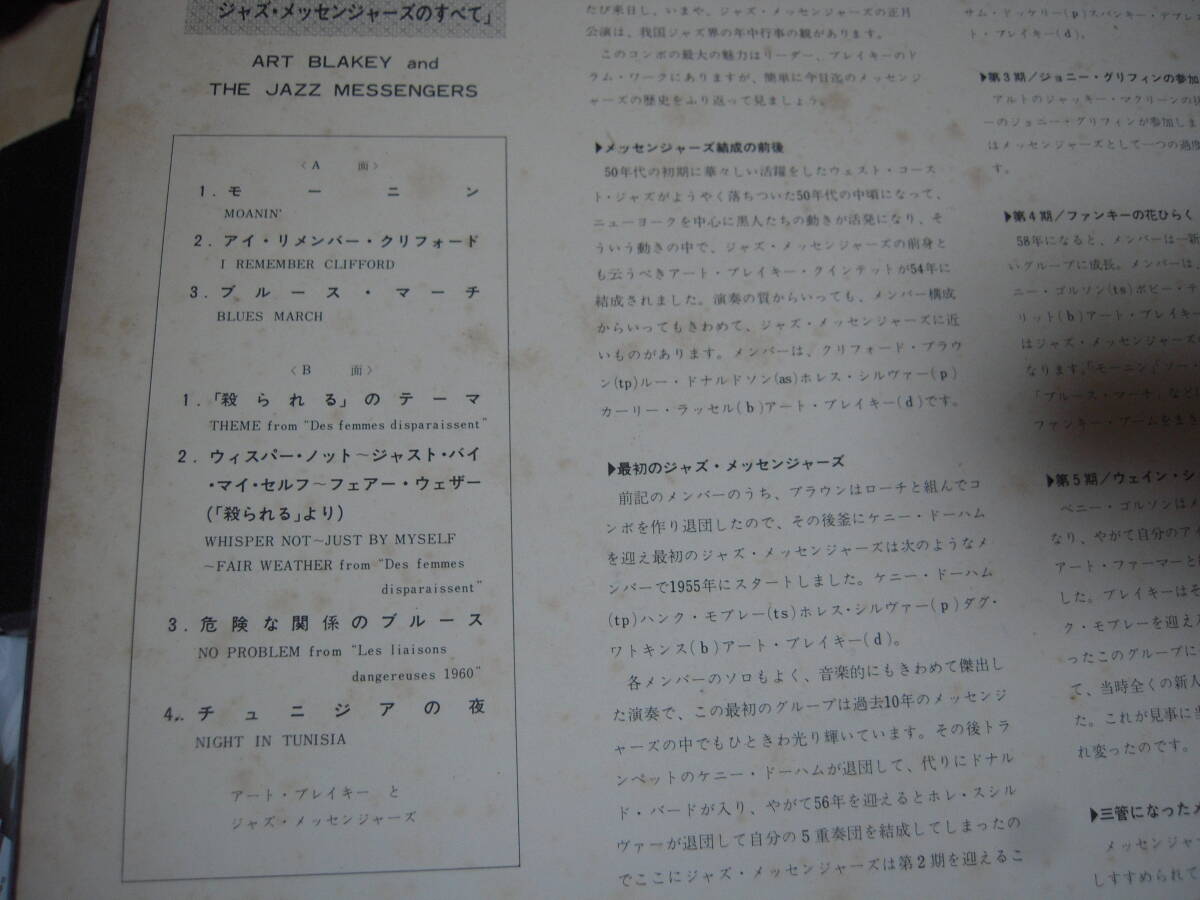 ジャズ・メッセンジャーズのすべて」
ART BLAKEY and
THE JAZZ MESSENGERS
〈A 面〉
1. モーニン
MOANIN'
2. アイ・リメンバー・クリフォード
I REMEMBER CLIFFORD
3. ブルース・マーチ
BLUES MARCH
〈B 面〉
1.「殺られる」のテーマ
THEME from "Des femmes disparaissent"
2. ウィスパー・ノット〜ジャスト・バイ
・マイ・セルフ〜フェアー・ウェザー
(「殺られる」より)
WHISPER NOT〜JUST BY MYSELF
〜FAIR WEATHER from "Des femmes
disparaissent"
3. 危険な関係のブルース
NO PROBLEM from "Les liaisons
dangereuses 1960"
4. チュニジアの夜
NIGHT IN TUNISIA
アート・ブレイキー と
ジャズ・メッセンジャーズ
たび来日し、いまや、ジャズ・メッセンジャーズの正月
公演は、我国ジャズ界の年中行事の観があります。
このコンボの最大の魅力はリーダー、ブレイキーのド
ラム・ワークにありますが、簡単に今日迄のメッセンジ
ャーズの歴史をふり返って見ましょう。
▶メッセンジャーズ結成の前後
50年代の初期に華々しい活躍をしたウェスト・コース
ト・ジャズがようやく落ちついた50年代の中頃になって、
ニューヨークを中心に黒人たちの動きが活発になり、そ
ういう動きの中で、ジャズ・メッセンジャーズの前身と
も云うべきアート・ブレイキー・クインテットが54年に
結成されました。演奏の質からいっても、メンバー構成
からいってもきわめて、ジャズ・メッセンジャーズに近
いものがあります。メンバーは、クリフォード・ブラウ
ン(tp)ルー・ドナルドソン(as)ホレス・シルヴァー(p)
カーリー・ラッセル(b)アート・ブレイキー(d)です。
▶最初のジャズ・メッセンジャーズ
前記のメンバーのうち、ブラウンはローチと組んでコ
ンボを作り退団したので、その後釜にケニー・ドーハム
を迎え最初のジャズ・メッセンジャーズは次のようなメ
ンバーで1955年にスタートしました。ケニー・ドーハム
(tp)ハンク・モブレー(ts)ホレス・シルヴァー(p)ダグ・
ワトキンス(b)アート・ブレイキー(d)。
各メンバーのソロもよく、音楽的にもきわめて傑出し
た演奏で、この最初のグループは過去10年のメッセンジ
ャーズの中でもひときわ光り輝いています。その後トラ
ンペットのケニー・ドーハムが退団して、代りにドナル
ド・バードが入り、やがて56年を迎えるとホレ・スシル
ヴァーが退団して自分の5重奏団を結成してしまったの
でここにジャズ・メッセンジャーズは第2期を迎えるこ
サム・ドッケリー(p)スパンキー・デブレ
ト・ブレイキー(d)。
▶第3期/ジョニー・グリフィンの参加
アルトのジャッキー・マクリーンの
ーのジョニー・グリフィンが参加しま
はメッセンジャーズとして一つの過度
す。
▶第4期/ファンキーの花ひらく
58年になると、メンバーは一新
いグループに成長。メンバーは、
ニー・ゴルソン(ts)ボビー・テ
リット(b)アート・ブレイキー
はジャズ・メッセンジャーズ
なります。「モーニン」「ソー・
「ブルース・マーチ」など
ファンキー・ブームをまき
▶第5期/ウェイン・シ
ベニー・ゴルソンはメ
なり、やがて自分のアイ
アート・ファーマーと
した。ブレイキーはそ
ク・モブレーを迎え
ったこのグループに
て、当時全くの新人
た。これが見事に当
れ変ったのです。
▶三管になったメ
メッセンジャー
しすすめられて